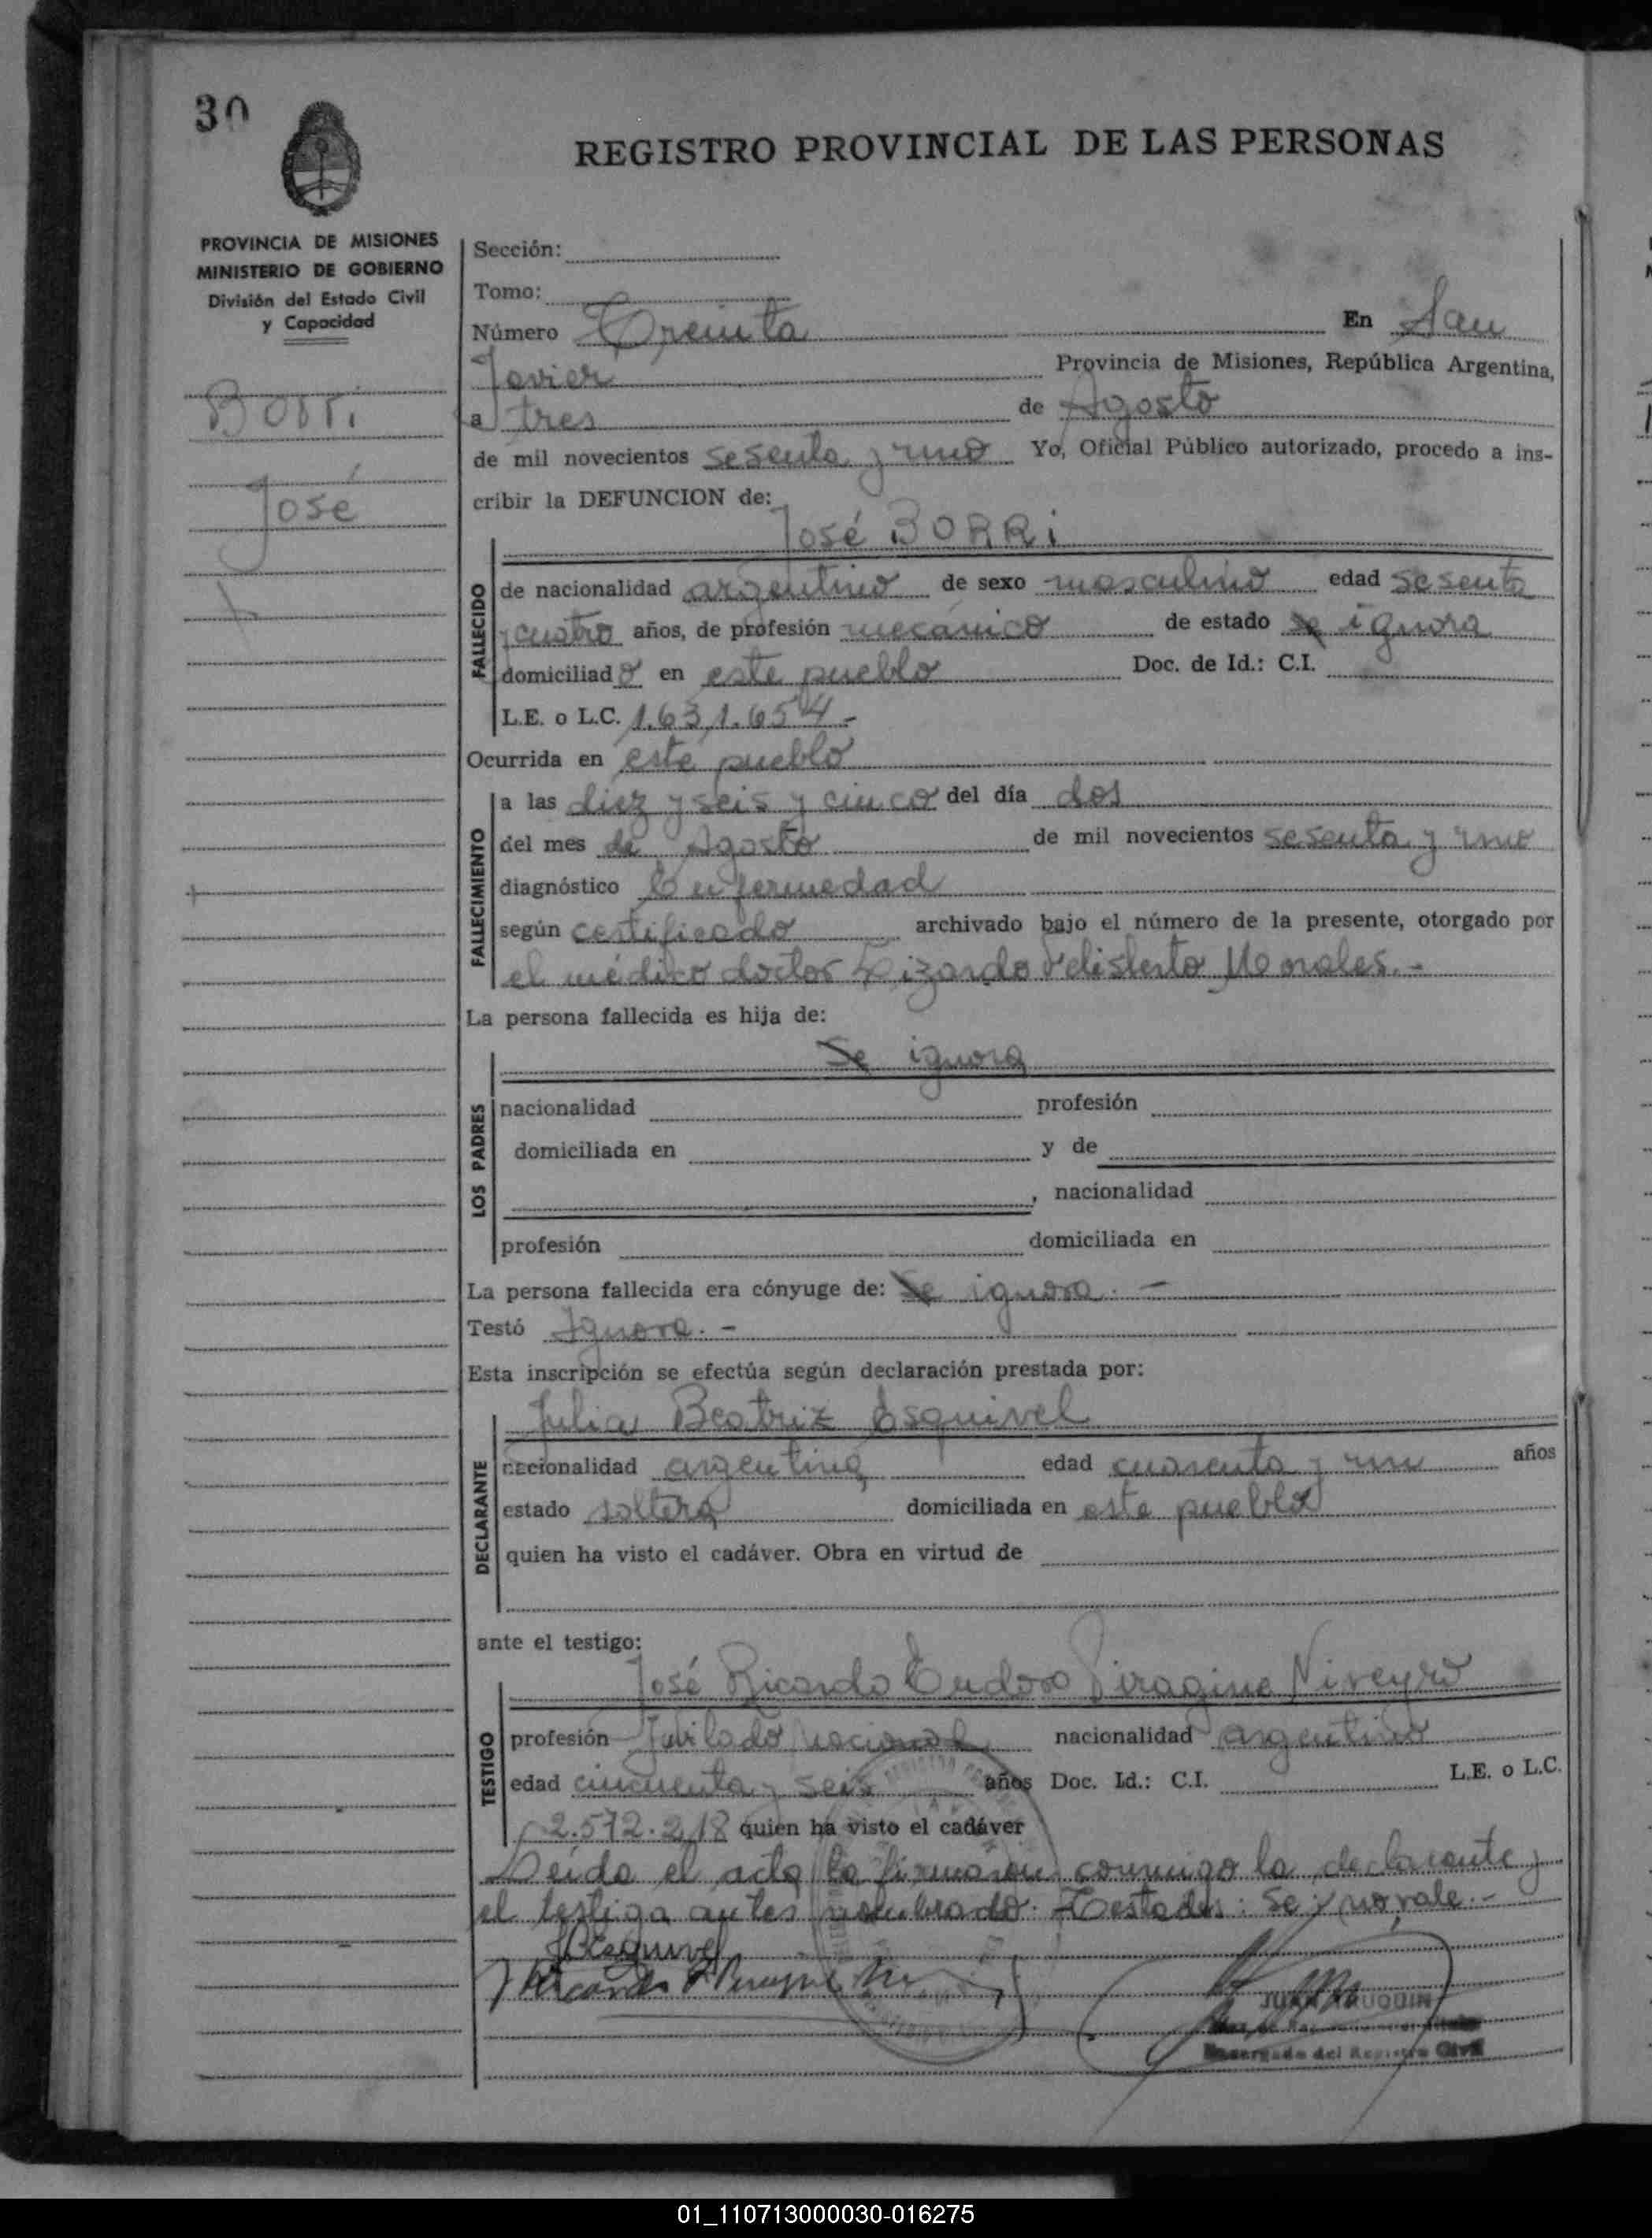 30
REGISTRO PROVINCIAL DE LAS PERSONAS
PROVINCIA DE MISIONES
MINISTERIO DE GOBIERNO
División del Estado Civil
y Capacidad
Borri
José
Sección:
Tomo:
Número Treinta En San
Javier Provincia de Misiones, República Argentina,
a tres de Agosto
de mil novecientos sesenta y uno Yo, Oficial Público autorizado, procedo a ins-
cribir la DEFUNCION de:
José BORRi
FALLECIDO
de nacionalidad argentino de sexo masculino edad sesenta
y cuatro años, de profesión mecánico de estado se ignora
domiciliado en este pueblo Doc. de Id.: C.I.
L.E. o L.C. 1.631.654.-
Ocurrida en este pueblo
FALLECIMIENTO
a las diez y seis y cinco del día dos
del mes de Agosto de mil novecientos sesenta y uno
diagnóstico Enfermedad
según certificado archivado bajo el número de la presente, otorgado por
el médico doctor Lizardo Felisberto Morales.-
La persona fallecida es hija de:
Se ignora
LOS PADRES
nacionalidad profesión
domiciliada en y de
, nacionalidad
profesión domiciliada en
La persona fallecida era cónyuge de: Se ignora.-
Testó Ignora.-
Esta inscripción se efectúa según declaración prestada por:
Julia Beatriz Esquivel
DECLARANTE
nacionalidad argentina edad cuarenta y un años
estado soltera domiciliada en este pueblo
quien ha visto el cadáver. Obra en virtud de
ante el testigo:
José Ricardo Eudoro Piragine Niveyro
TESTIGO
profesión Jubilado nacional nacionalidad argentino
edad cincuenta y seis años Doc. Id.: C.I. L.E. o L.C.
2.572.218 quien ha visto el cadáver
Leída el acta la firmaron conmigo la declarante y
el testigo antes nombrado. Testados: Se y no vale.-
JBEsquivel
JUAN
Encargado del Registro Civil
01_110713000030-016275